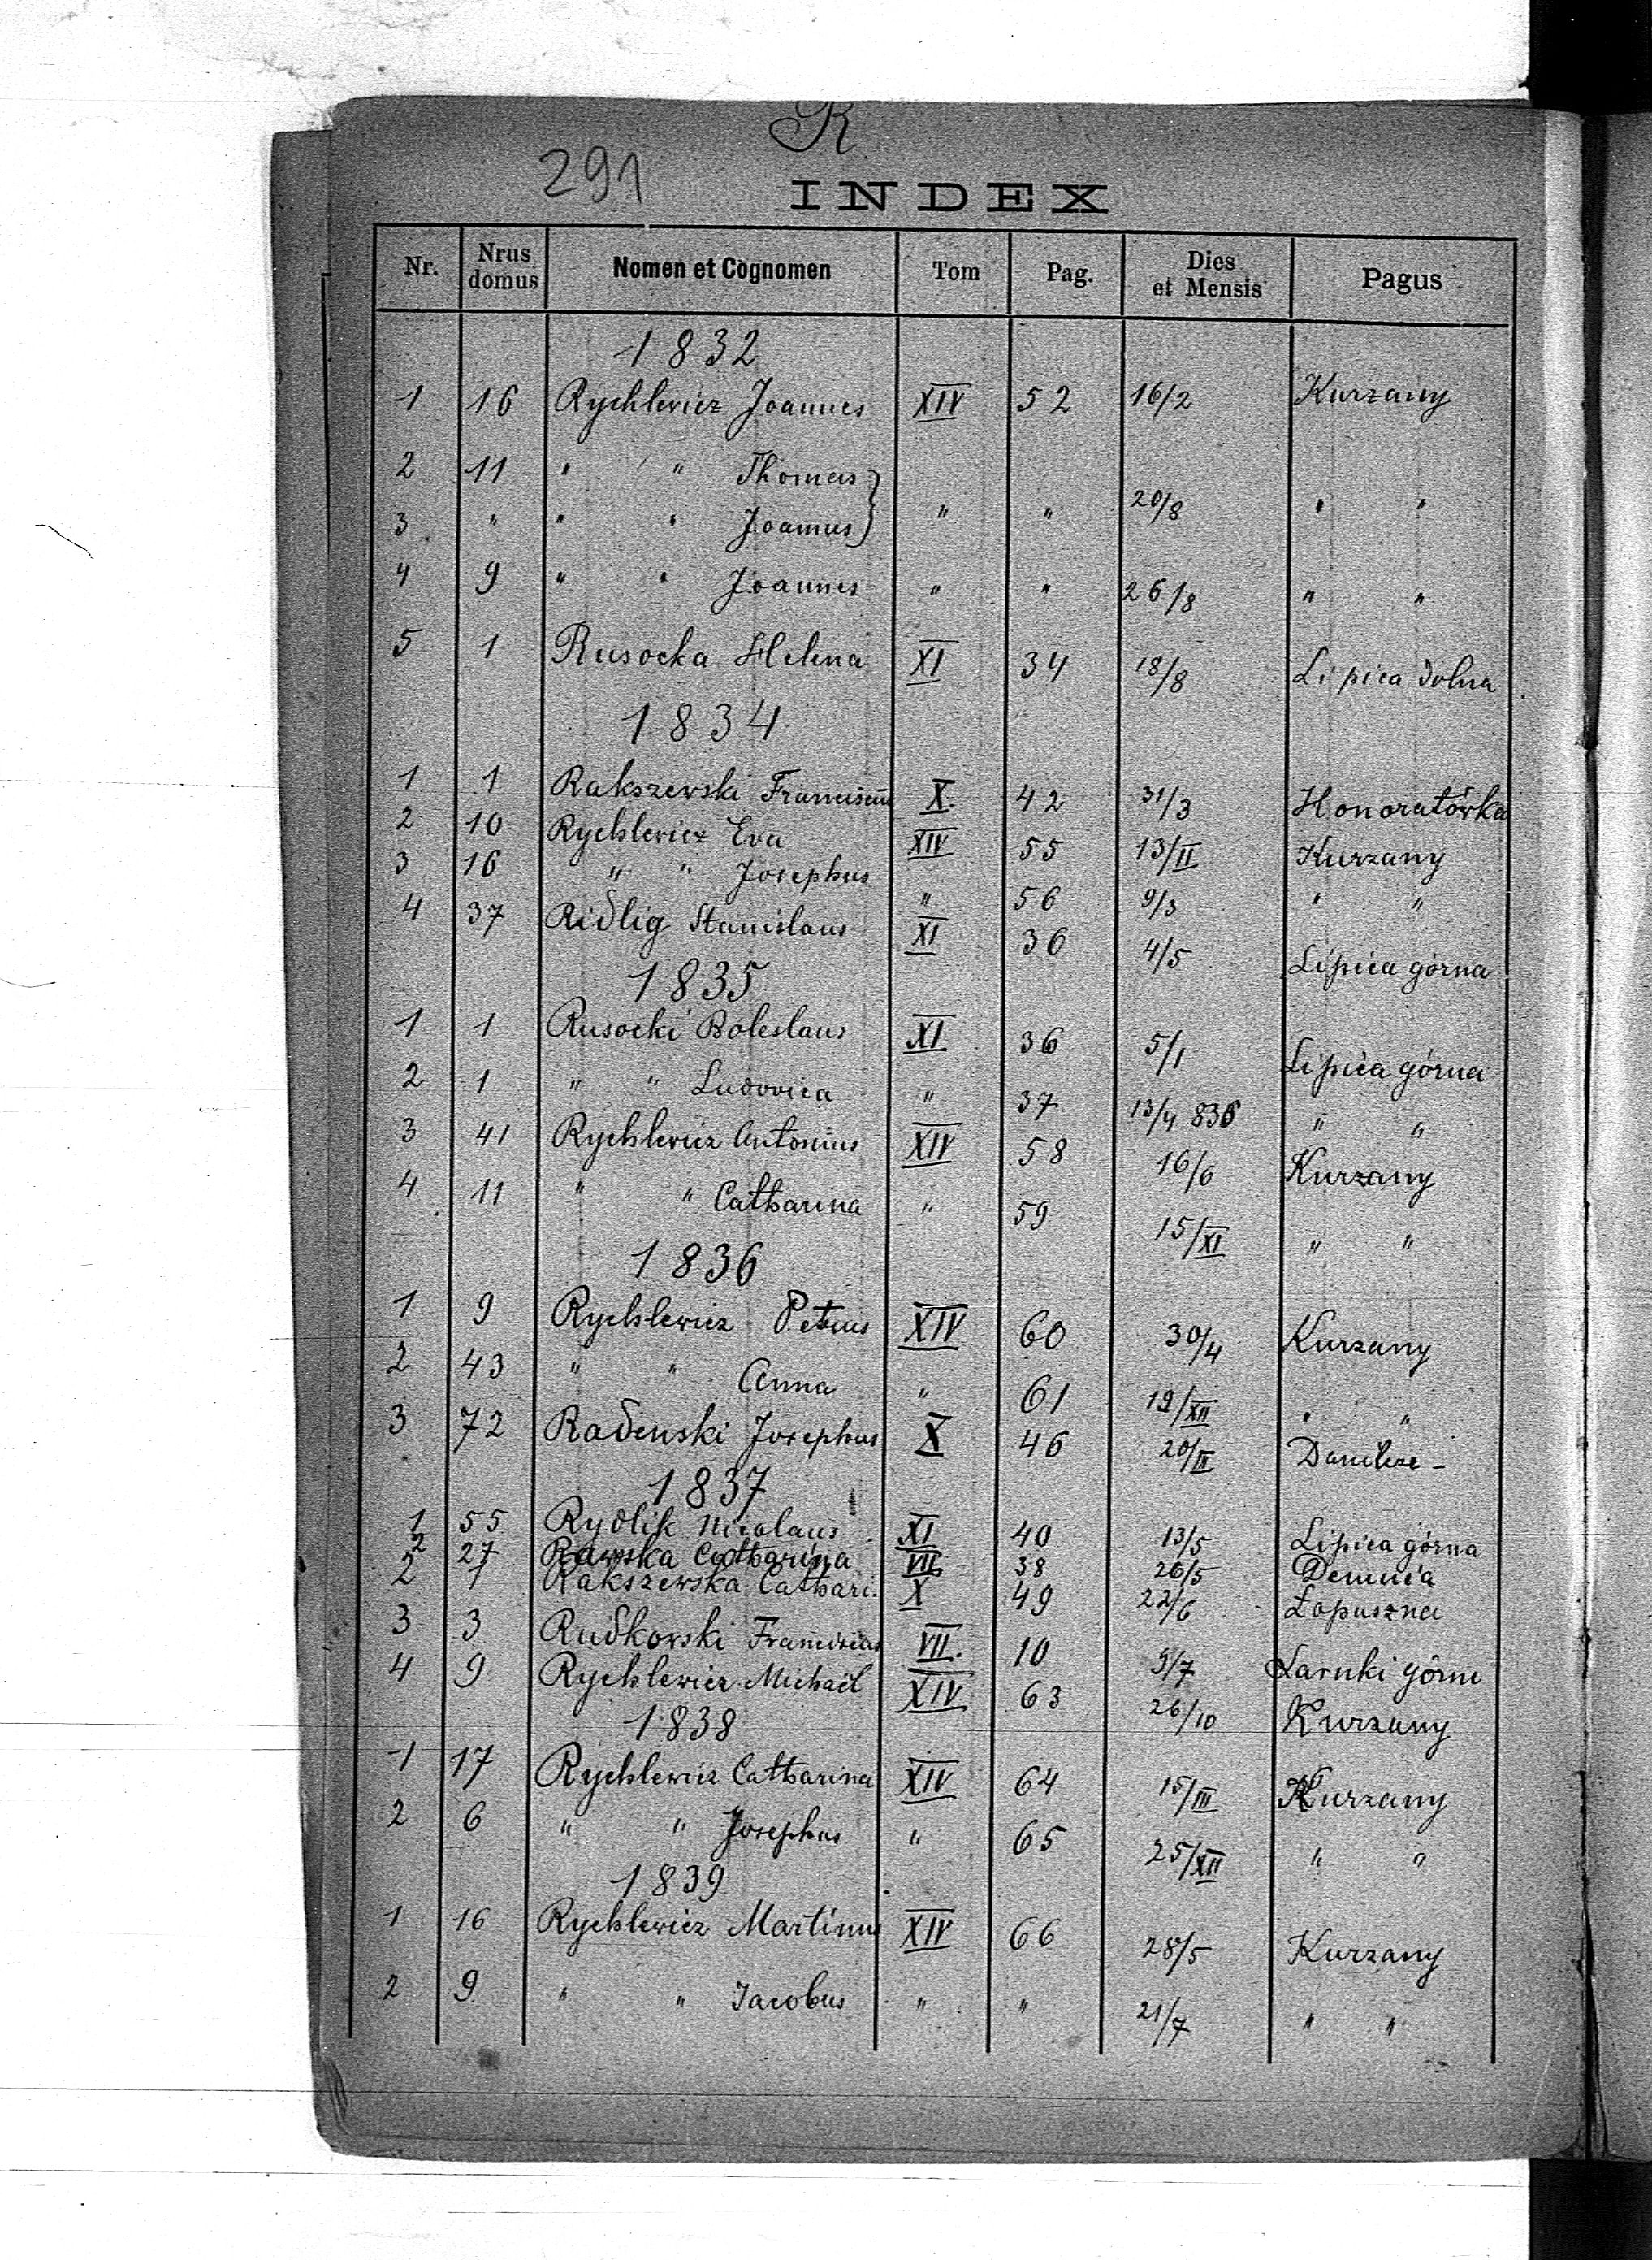 R
291
INDEX
Nr. Nrus domus Nomen et Cognomen Tom Pag. Dies et Mensis Pagus
1832
1 16 Rychlewicz Joannes XIV 52 16/2 Kurzany
2 11 " " Thomas
3 " " " Joannes } " " 20/8 " "
4 9 " " Joannes " " 26/8 " "
5 1 Rusocka Helena XI 34 18/8 Lipica dolna
1834
1 1 Rakszewski Franciscus X. 42 31/3 Honoratówka
2 10 Rychlewicz Eva XIV 55 13/II Kurzany
3 16 " " Josephus " 56 9/3 " "
4 37 Ridlig Stanislaus XI 36 4/5 Lipica górna
1835
1 1 Rusocki Boleslaus XI 36 5/1 Lipica górna
2 1 " " Ludovica " 37 13/4 836 " "
3 41 Rychlewicz Antonius XIV 58 16/6 Kurzany
4 11 " " Catharina " 59 15/XI " "
1836
1 9 Rychlewicz Petrus XIV 60 30/4 Kurzany
2 43 " " Anna " 61 19/XII " "
3 72 Radenski Josephus X 46 20/III Danilcze -
1837
1 55 Rydlik Nicolaus XI 40 13/5 Lipica górna
2 27 Rawska Catharina VII 38 26/5 Demnia
2 1 Rakszewska Cathari. X 49 22/6 Łopuszna
3 3 Rudkowski Franciscus VII. 10 9/7 Sarnki górne
4 9 Rychlewicz Michaël XIV 63 26/10 Kurzany
1838
1 17 Rychlewicz Catharina XIV 64 15/III Kurzany
2 6 " " Josephus " 65 25/XII " "
1839
1 16 Rychlewicz Martinus XIV 66 28/5 Kurzany
2 9 " " Jacobus " " 21/7 " "